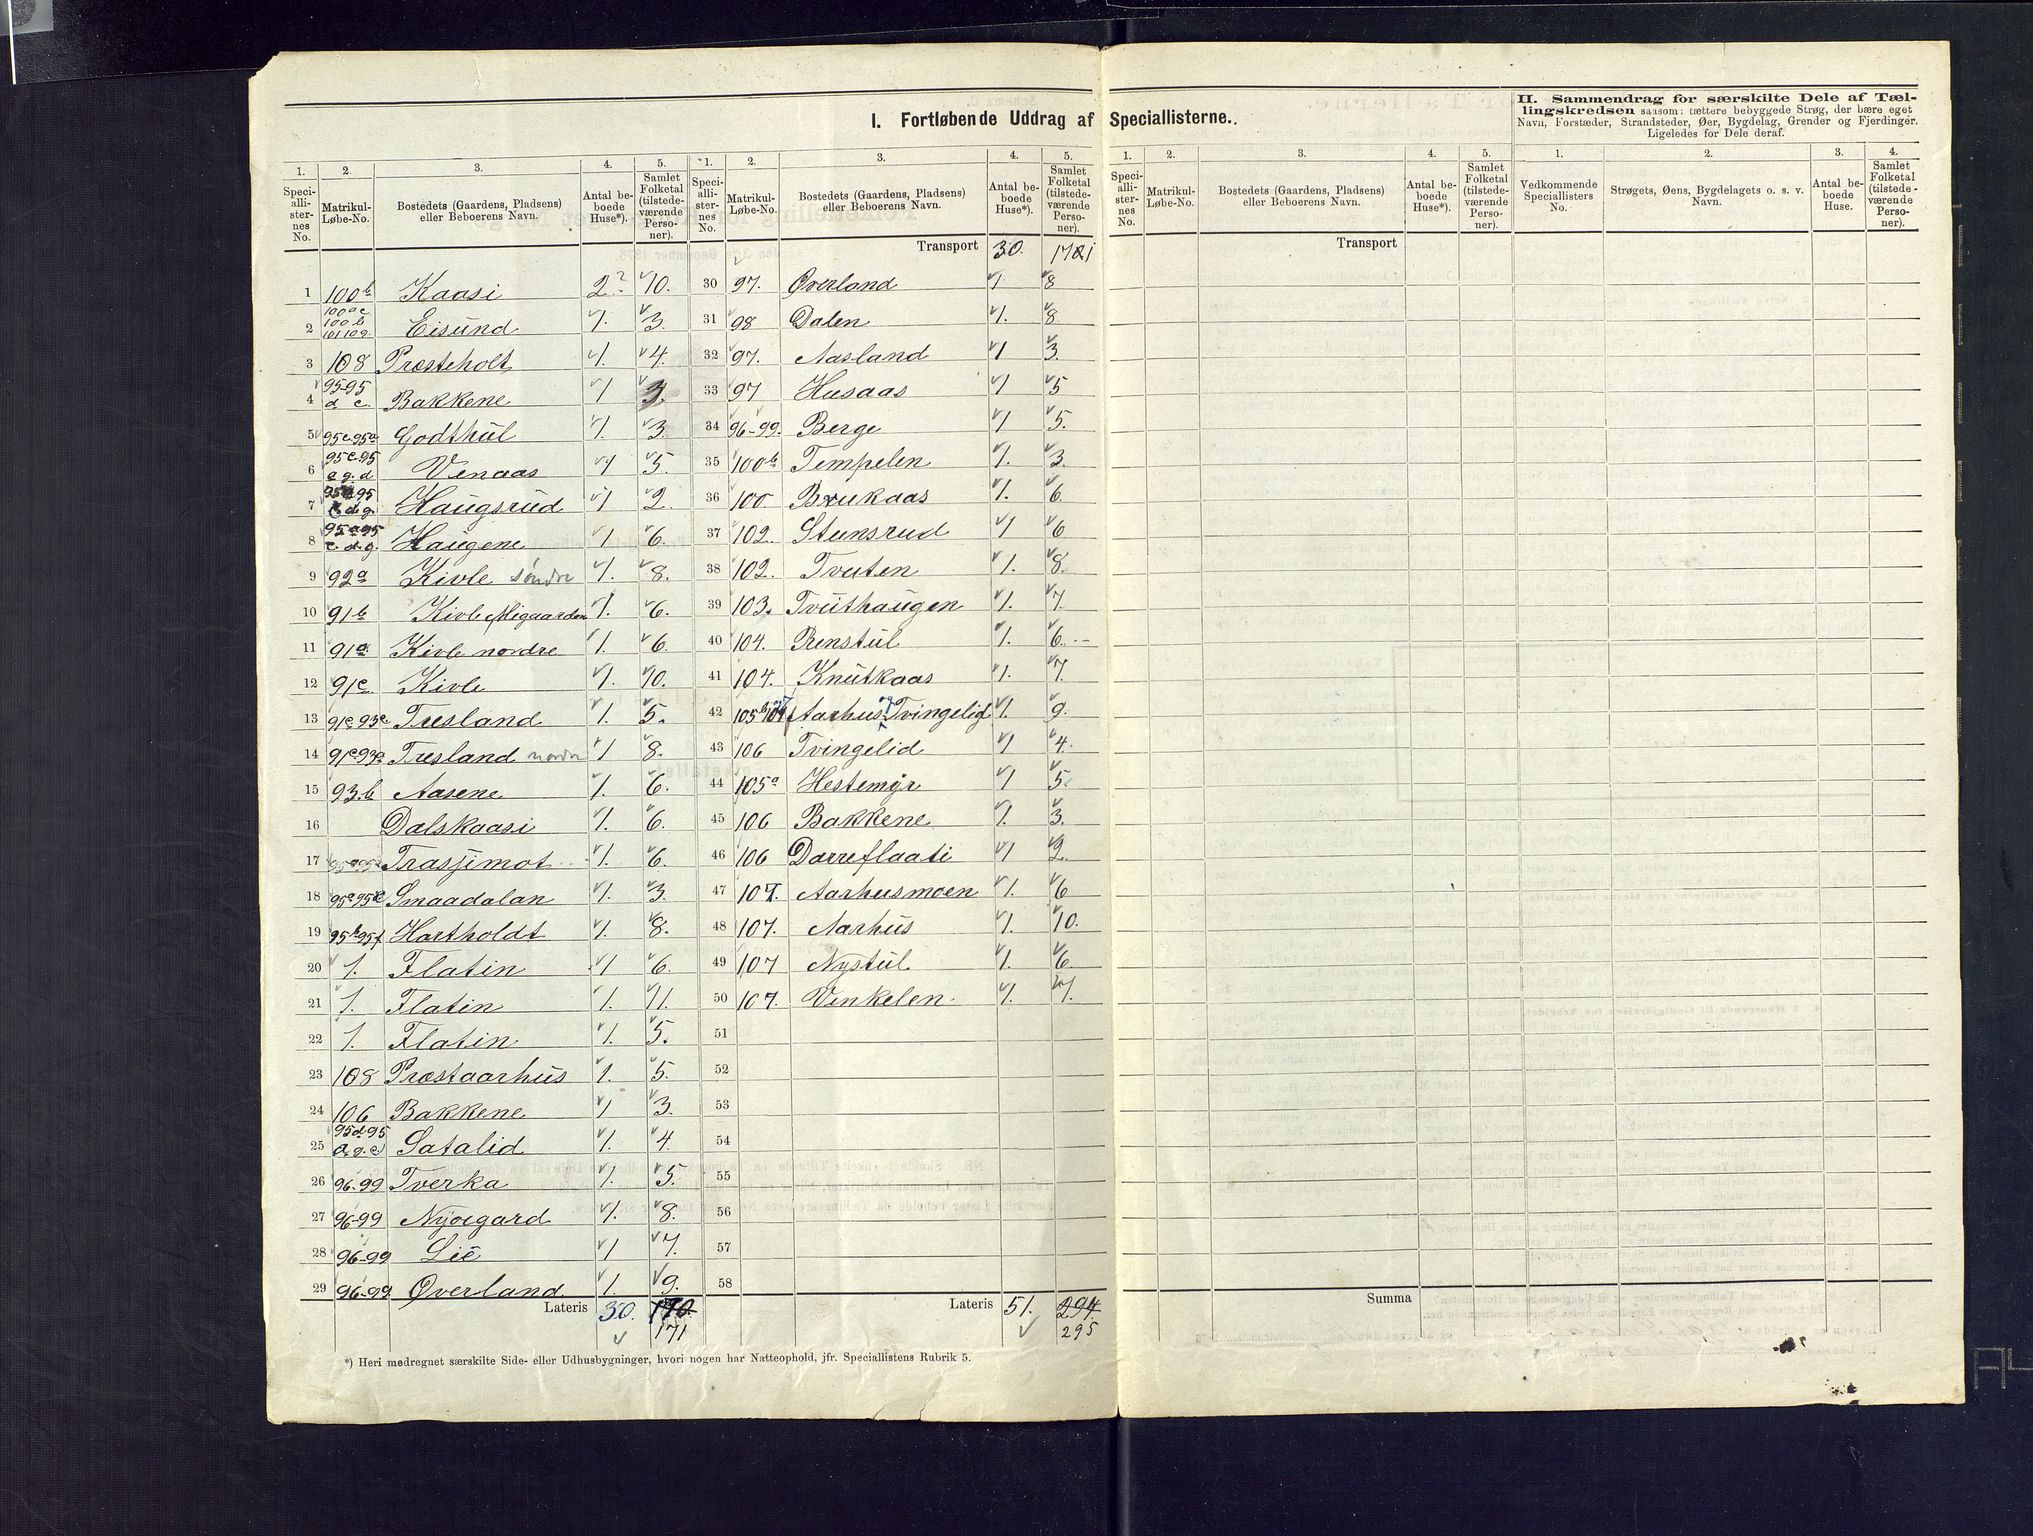 I. Fortløbende Uddrag af Speciallisterne.
1. Speciallisternes No. 2. Matrikul-Løbe-No. 3. Bostedets (Gaardens, Pladsens) eller Beboerens Navn. 4. Antal beboede Huse*). 5. Samlet Folketal (tilstedeværende Personer).
1 100b Kaasi 2? 10.
2 100ac 100b Eisund 1. 3.
3 108 Præsteholt 1. 4.
4 95-95 d c. Bakkene 1
5 95c.95a Godthul 1. 3.
6 95c.95 e g. d Venaas 1 5.
7 95 95 d g. Haugsrud 1 2.
8 95a95 c. d. g. Haugene 1 6.
9 92a Kivle søndre 1. 8.
10 91b Kivle Migaarden 1. 6.
11 91a Kivle nordre 1. 6.
12 91c. Kivle 1. 10.
13 91c.93c Træsland 1. 5.
14 91c93a Træsland nordre 1 8.
15 93.b Aasene 1. 6.
16 Dalskaasi 1. 6.
17 Trasjimot 1. 6.
18 95c95 Smaadalan 1. 3.
19 95b95f Hartholdt 1. 8.
20 1. Flatin 1 6.
21 1. Flatin 1. 11.
22 1. Flatin 1. 5.
23 108 Præstaarhus 1. 5.
24 106 Bakkene 1 3.
25 95d95 a. g. c Satalid 1. 4.
26 96-99 Tverka 1. 5.
27 96-99 Nyøegard 1. 8.
28 96-99 Lie 1 7.
29 96-99 Øverland 1. 9.
Lateris 30. 170.
171
1. Speciallisternes No. 2. Matrikul-Løbe-No. 3. Bostedets (Gaardens, Pladsens) eller Beboerens Navn. 4. Antal beboede Huse*). 5. Samlet Folketal (tilstedeværende Personer).
Transport 30. 171
30 97. Øverland 1 8
31 98 Dalen 1. 8.
32 97. Aasland 1 3.
33 97 Husaas 1 5
34 96-99. Berge 1 5.
35 100b Tempelen 1. 3.
36 100. Brukaas 1. 6.
37 102. Stensrud 1 6
38 102. Tveiten 1. 8.
39 103. Tveithaugen 1. 7.
40 104. Renstul 1. 6.
41 104. Knutkaas 1. 7.
42 105b104 Aarhus og Tvingelid 1. 9.
43 106 Tvingelid 1 4.
44 105a Hestemyr 1 5.
45 106 Bakkene 1. 3.
46 106 Darreflaati 1 2.
47 107. Aarhusmoen 1. 6
48 107. Aarhus 1. 10.
49 107 Nystul 1. 6.
50 107. Vinkelen. 1. 7.
51
52
53
54
55
56
57
58
Lateris 51. 294.
295
*) Heri medregnet særskilte Side- eller Udhusbygninger, hvori nogen har Natteophold, jfr. Speciallistens Rubrik 5.
1. Speciallisternes No. 2. Matrikul-Løbe-No. 3. Bostedets (Gaardens, Pladsens) eller Beboerens Navn. 4. Antal beboede Huse*). 5. Samlet Folketal (tilstedeværende Personer).
Transport
Summa
II. Sammendrag for særskilte Dele af Tællingskredsen saasom: tættere bebyggede Strøg, der bære eget Navn, Forstæder, Strandsteder, Øer, Bygdelag, Grender og Fjerdinger. Ligeledes for Dele deraf.
1. Vedkommende Speciallisters No. 2. Strøgets, Øens, Bygdelagets o. s. v. Navn. 3. Antal beboede Huse. 4. Samlet Folketal (tilstedeværende Personer).